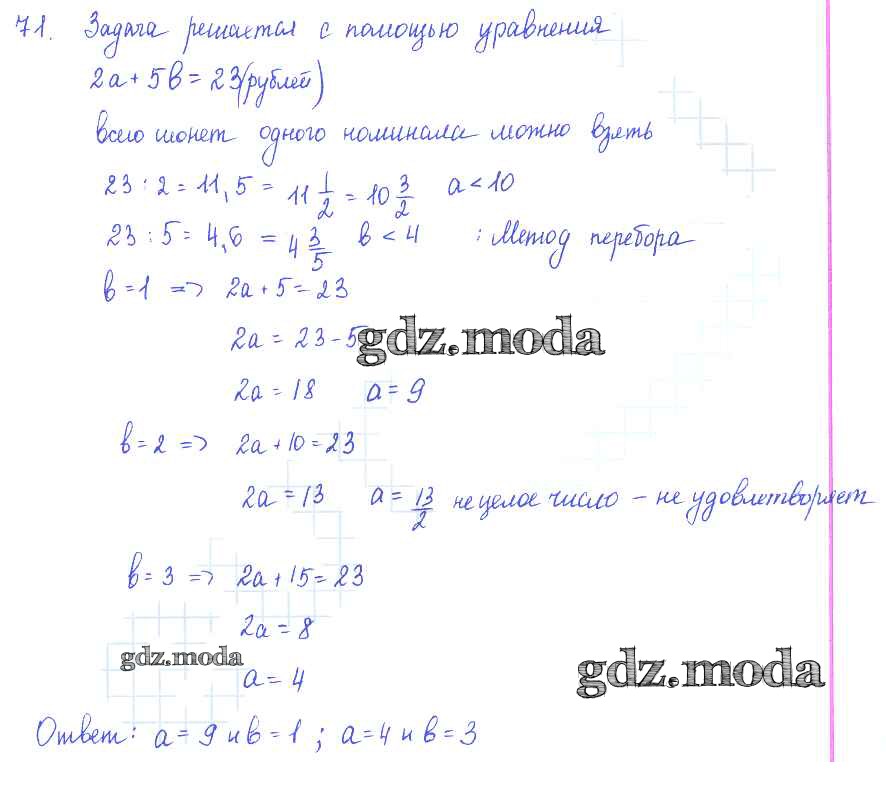 71. Задача решается с помощью уравнения
2a + 5b = 23 (рублей)
всего монет одного номинала можно взять
23 : 2 = 11,5 = 11 1/2 = 10 3/2 a < 10
23 : 5 = 4,6 = 4 3/5 b < 4 : Метод перебора
b = 1 => 2a + 5 = 23
2a = 23 - 5
gdz.moda
2a = 18 a = 9
b = 2 => 2a + 10 = 23
2a = 13 a = 13/2 не целое число – не удовлетворяет
b = 3 => 2a + 15 = 23
2a = 8
gdz.moda
gdz.moda
a = 4
Ответ: a = 9 и b = 1 ; a = 4 и b = 3